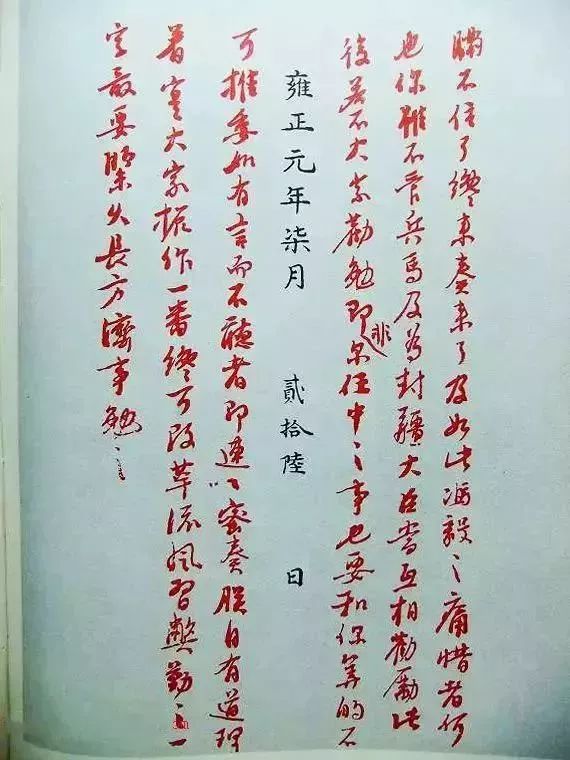 瞞不信了纔来奏来了及如此馮毅之庸惜者何
也你雖不管兵馬及為封疆大臣當互相勸勵此
後若不大家勸勉即非尔任中之事也要和你算的不
雍正元年柒月 貳拾陸 日
可推委如有言而不聽者即速密奏朕自有道理
着实大家振作一番纔可改革流風習弊勤之一
字最要緊久長方濟事勉之